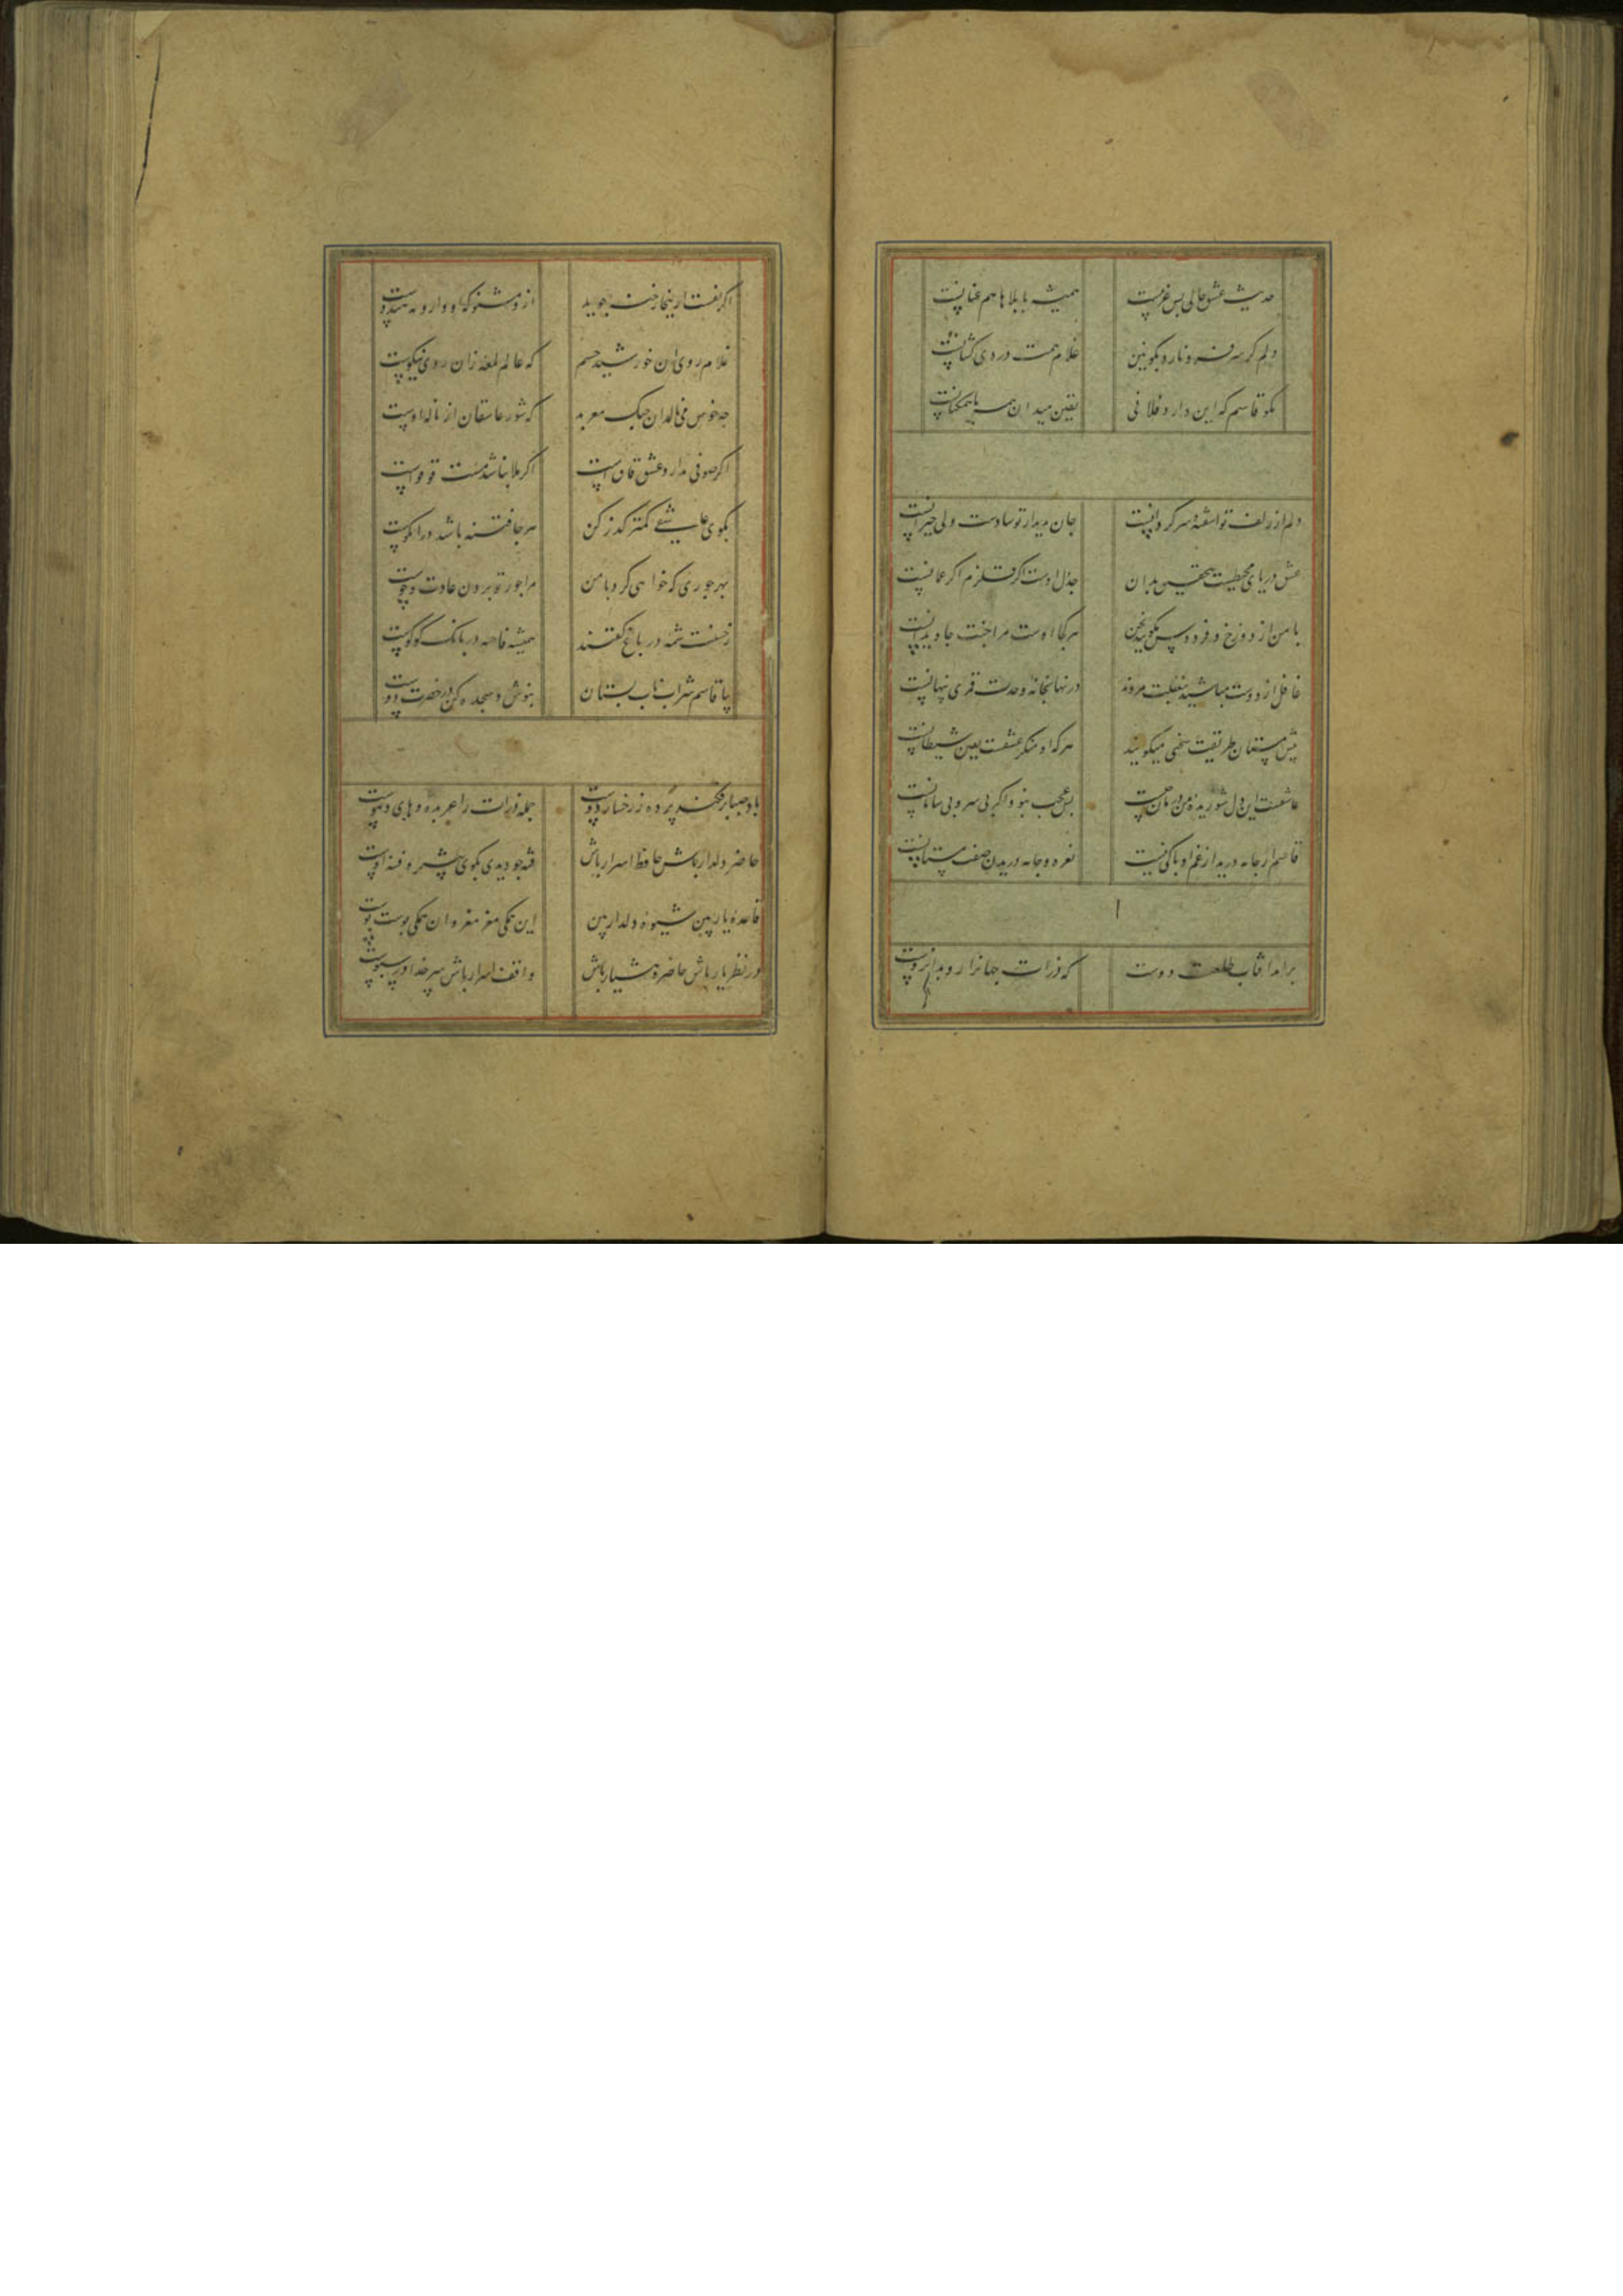 حدیث عشق حالی بس غریبست همیشه با بلاها هم عنانست
دلم کر سر فرو نارد بکونین غلام همت دردی کشانست
بکو قاسم که این دارد فلانی یقین میدان همه با
دلم از زلف تو اشفته و سرکردانست جان بدیدار تو شادست ولی حیرانست
عشق دریای محیطست بتحقیق بدان جدول اوست اکر قلزم اکر عمانست
با من از دوزخ و فردوس مکویید سخن هر کجا اوست مرا جنت جاویدانست
غافل از دوست مباشید بغفلت مروید در نهانخانه وحدت قمری پنهانست
پیش مستان طریقت سخنی میکویند هر که او منکر عشقست یقین شیطانست
عاشقست این دل شوریده من درمان چیست بس عجب نبود اکر بی سر و بی سامانست
قاسم ار جامه درید از غم او باکی نیست نعره و جامه دریدن صفت مستانست
برامد افتاب طلعت دوست که ذرات جهانرا رو بدانروست
اکر نفست ازینجا رخنه جوید ازو مشنو که او وارونه هندوست
غلام روی ان خورشید چشم که عالم لمعه زان روی نیکوست
چه خوش می نالد ان چنک معربد که شور عاشقان از ناله اوست
اکر صوفی ندارد عشق قان است اکر ملا نباشد مست قوقوست
بکوی عاشقی کمتر کذر کن هر جا فتنه باشد در ان کوست
بهر جوری که خواهی کرد با من مرا جور تو بردن عادت و خوست
ز حسنت شمه در باغ کفتند همیشه فاخته در بانک کوکوست
بیا قاسم شراب ناب بستان بنوش و سجده کن در حضرت دوست
باد صبا برفکند پرده ز رخسار دوست جمله ذرات را عربده و های و هوست
حاضر دلدار باش حافظ اسرار باش فتنه چو دیدی بکوی چشمه و فتنه اوست
قاعده یار بین شیوه دلدار بین این همکی مغز مغز و ان همکی پوست پوست
در نظر یار باش حاضر و هشیار باش واقف اسرار باش سر خدا در سبوست